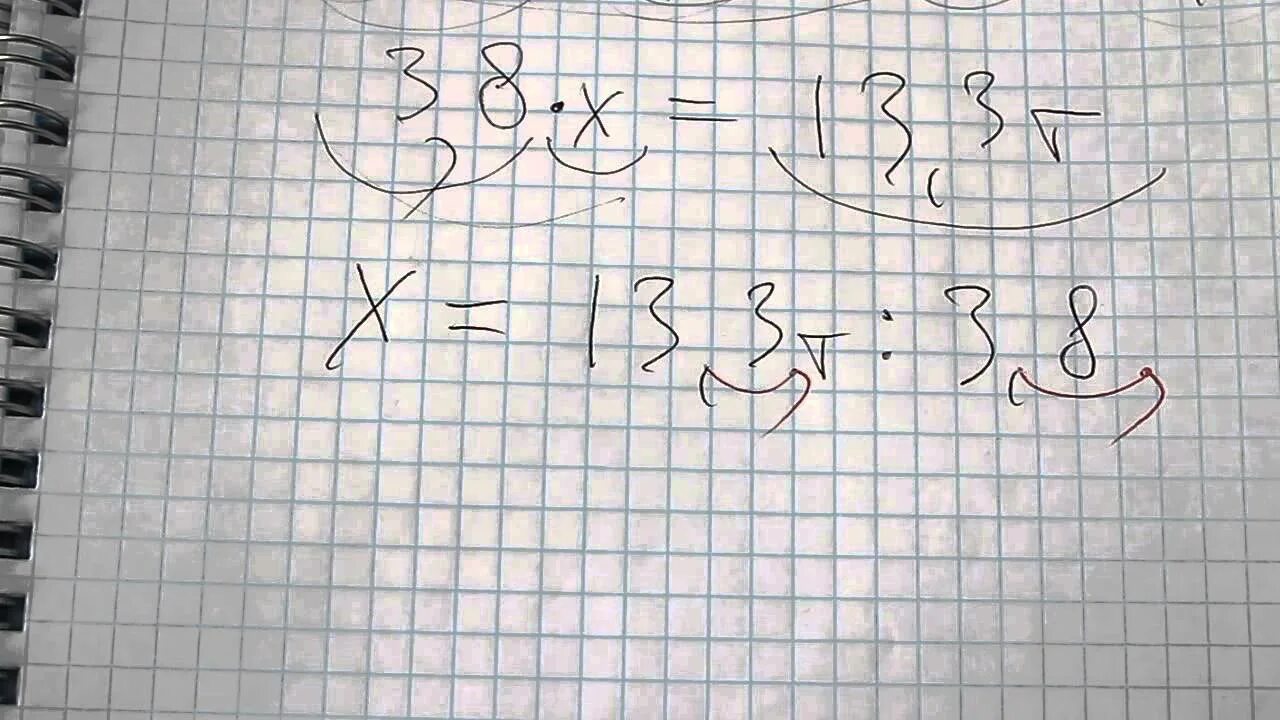 3,8 · x = 13,3 т
x = 13,3 т : 3,8